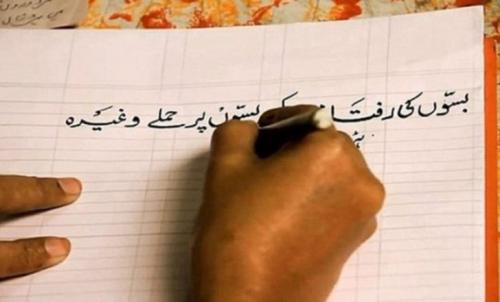 بسّوں کی رفتا بسّوں پر حملے وغیرہ